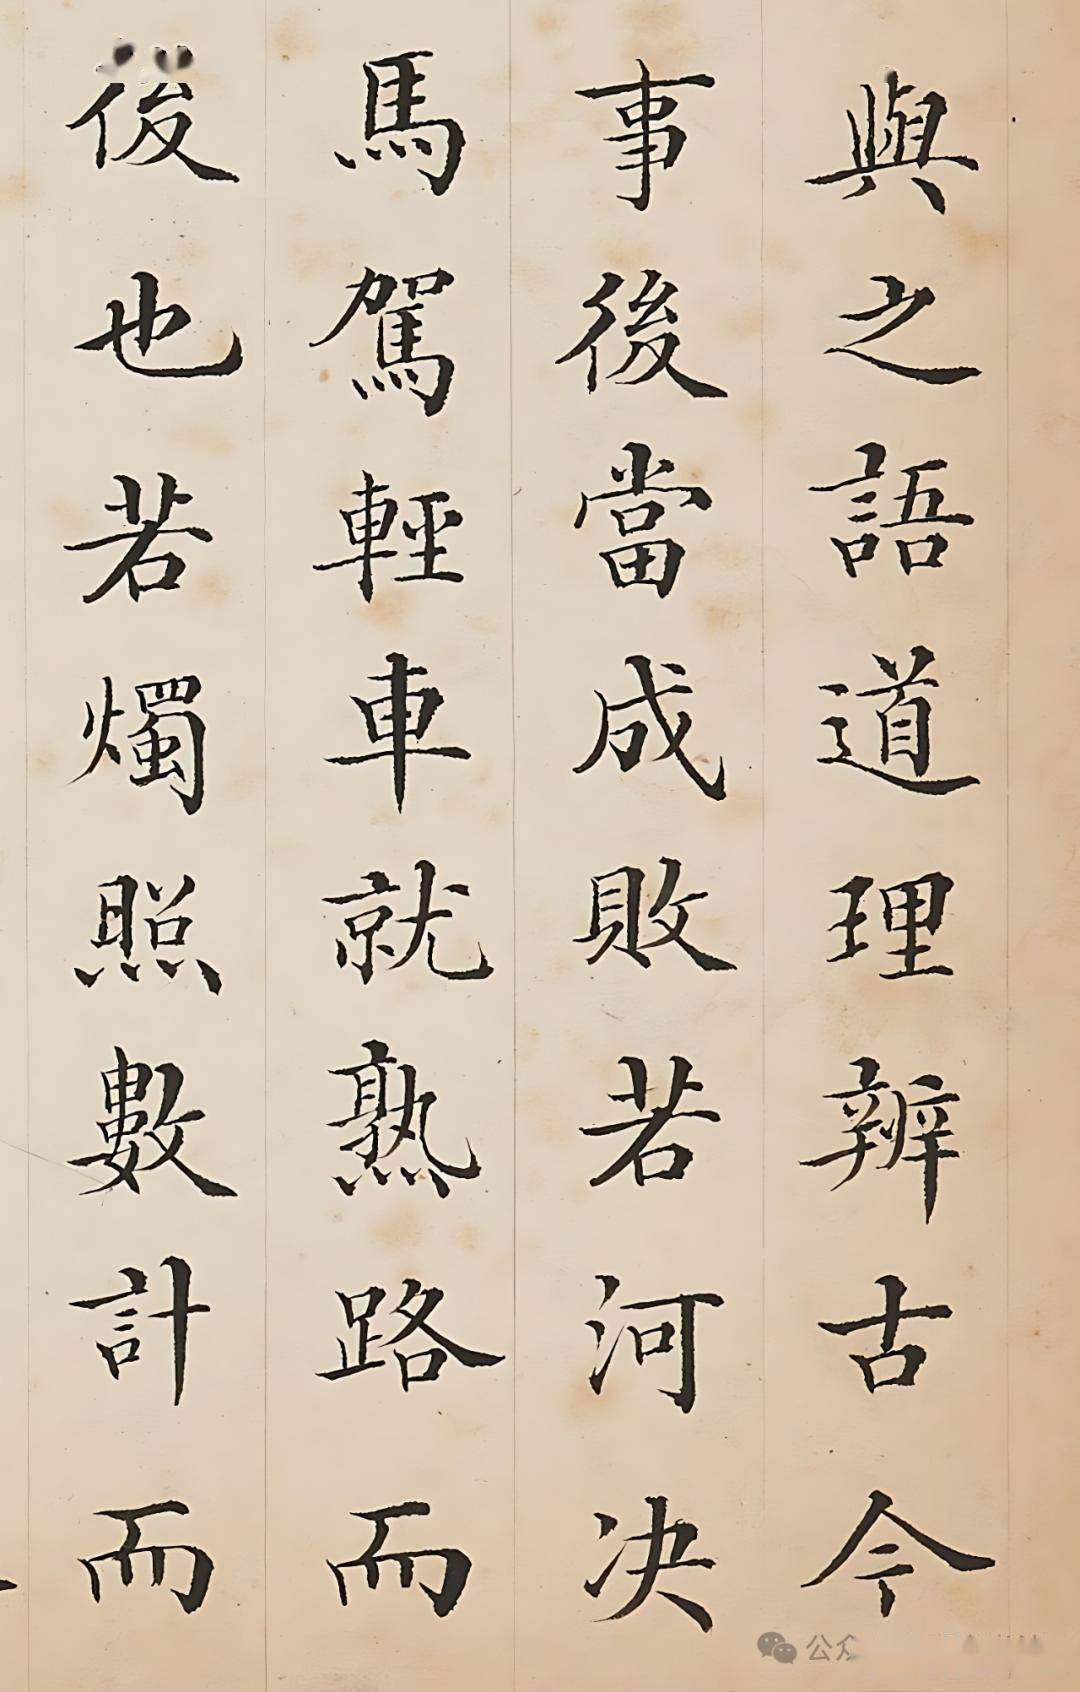 與之語道理辨古今
事後當成敗若河决
馬駕輕車就熟路而
後也若燭照數計而
公众